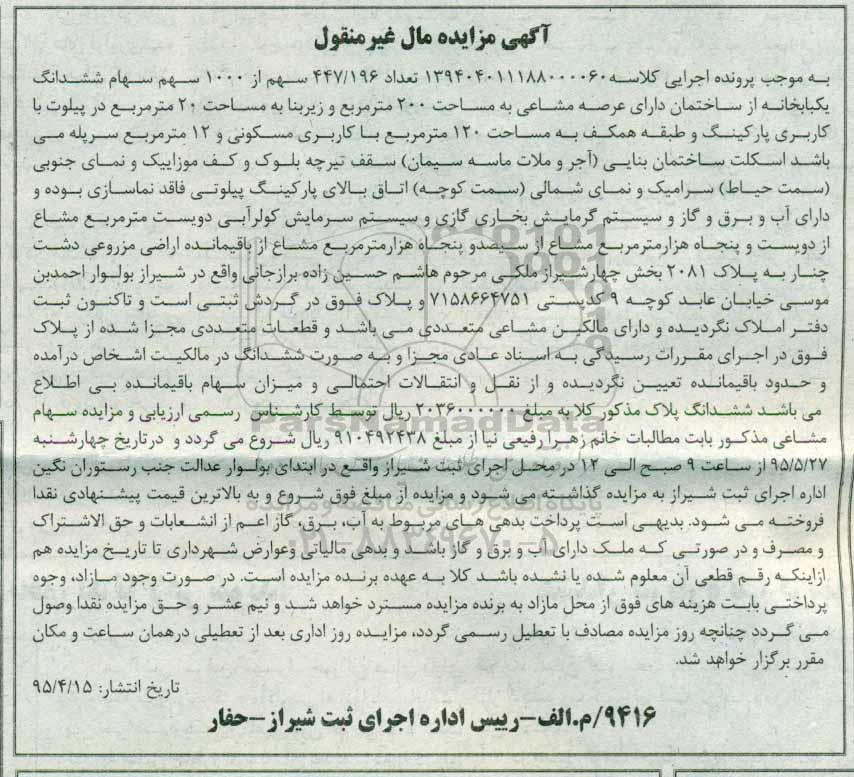 آگهی مزایده مال غیرمنقول
به موجب پرونده اجرایی کلاسه ۱۳۹۴۰۴۰۱۱۱۸۸۰۰۰۰۶۰ تعداد ۴۴۷/۱۹۶ سهم از ۱۰۰۰ سهم سهام ششدانگ
یکبابخانه از ساختمان دارای عرصه مشاعی به مساحت ۲۰۰ مترمربع و زیربنا به مساحت ۲۰ مترمربع در پیلوت با
کاربری پارکینگ و طبقه همکف به مساحت ۱۲۰ مترمربع با کاربری مسکونی و ۱۲ مترمربع سرپله می
باشد اسکلت ساختمان بنایی (آجر و ملات ماسه سیمان) سقف تیرچه بلوک و کف موزاییک و نمای جنوبی
(سمت حیاط) سرامیک و نمای شمالی (سمت کوچه) اتاق بالای پارکینگ پیلوتی فاقد نماسازی بوده و
دارای آب و برق و گاز و سیستم گرمایش بخاری گازی و سیستم سرمایش کولرآبی دویست مترمربع مشاع
از دویست و پنجاه هزارمترمربع مشاع از سیصدو پنجاه هزارمترمربع مشاع از باقیمانده اراضی مزروعی دشت
چنار به پلاک ۲۰۸۱ بخش چهارشیراز ملکی مرحوم هاشم حسین زاده برازجانی واقع در شیراز بولوار احمدبن
موسی خیابان عابد کوچه ۹ کدپستی ۷۱۵۸۶۶۴۷۵۱ و پلاک فوق در گردش ثبتی است و تاکنون ثبت
دفتر املاک نگردیده و دارای مالکین مشاعی متعددی می باشد و قطعات متعددی مجزا شده از پلاک
فوق در اجرای مقررات رسیدگی به اسناد عادی مجزا و به صورت ششدانگ در مالکیت اشخاص درآمده
و حدود باقیمانده تعیین نگردیده و از نقل و انتقالات احتمالی و میزان سهام باقیمانده بی اطلاع
می باشد ششدانگ پلاک مذکور کلا به مبلغ ۲۰۳۶۰۰۰۰۰۰ ریال توسط کارشناس رسمی ارزیابی و مزایده سهام
مشاعی مذکور بابت مطالبات خانم زهرا رفیعی نیا از مبلغ ۹۱۰۴۹۲۴۳۸ ریال شروع می گردد و درتاریخ چهارشنبه
۹۵/۵/۲۷ از ساعت ۹ صبح الی ۱۲ در محل اجرای ثبت شیراز واقع در ابتدای بولوار عدالت جنب رستوران نگین
اداره اجرای ثبت شیراز به مزایده گذاشته می شود و مزایده از مبلغ فوق شروع و به بالاترین قیمت پیشنهادی نقدا
فروخته می شود. بدیهی است پرداخت بدهی های مربوط به آب، برق، گاز اعم از انشعابات و حق الاشتراک
و مصرف و در صورتی که ملک دارای آب و برق و گاز باشد و بدهی مالیاتی وعوارض شهرداری تا تاریخ مزایده هم
ازاینکه رقم قطعی آن معلوم شده یا نشده باشد کلا به عهده برنده مزایده است. در صورت وجود مازاد، وجوه
پرداختی بابت هزینه های فوق از محل مازاد به برنده مزایده مسترد خواهد شد و نیم عشر و حق مزایده نقدا وصول
می گردد چنانچه روز مزایده مصادف با تعطیل رسمی گردد، مزایده روز اداری بعد از تعطیلی درهمان ساعت و مکان
مقرر برگزار خواهد شد.
تاریخ انتشار: ۹۵/۴/۱۵
۹۴۱۶/م.الف-رییس اداره اجرای ثبت شیراز-حفار
ParsNamadData
۰۲۱-۸۸۳۴۹۶۷۰-۵